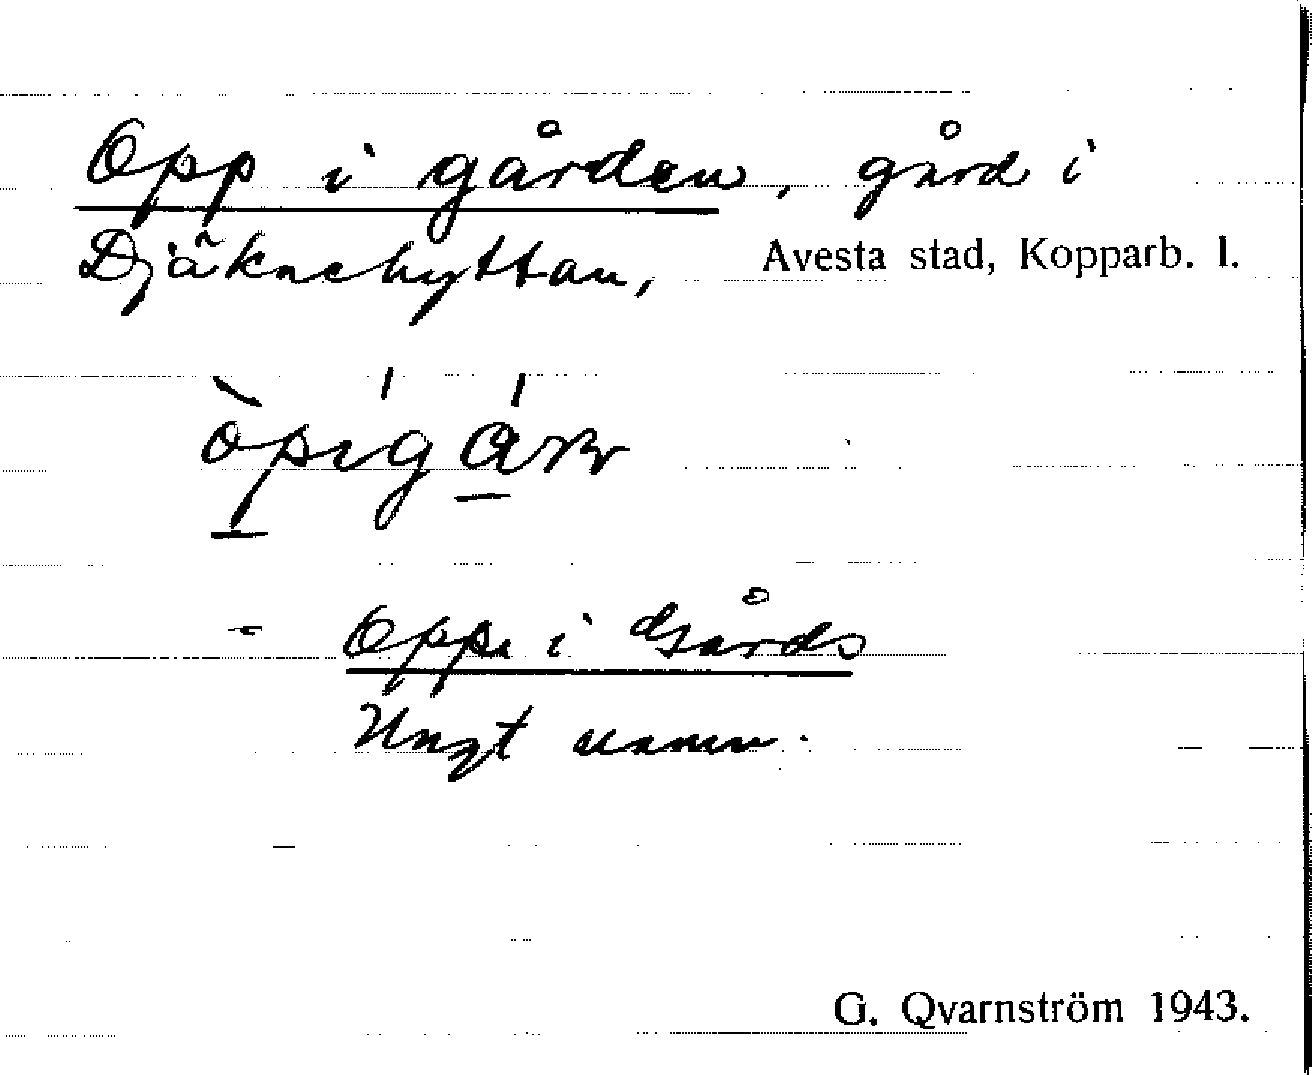 Opp i gården, gård i
Djäknehyttan, Avesta stad, Kopparb. l.
- Oppe i Gårds
Ungt namn.
G. Qvarnström 1943.